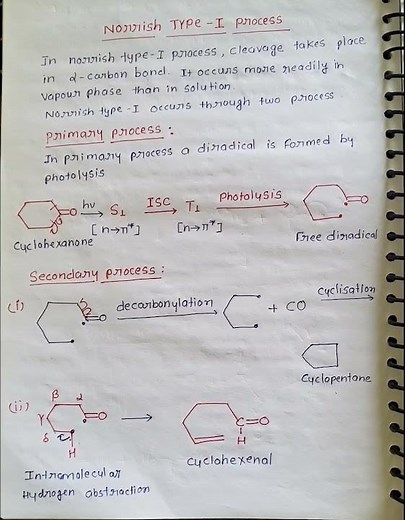 Norrish Type-I process
In norrish type-I process, cleavage takes place
in α-carbon bond. It occurs more readily in
vapour phase than in solution.
Norrish type-I occurs through two process
primary process:
In primary process a diradical is formed by
photolysis
=O hν S1 ISC T1 Photolysis =O
[n→π*] [n→π*]
Cyclohexanone Free diradical
Secondary process:
(i) =O decarbonylation + CO cyclisation
Cyclopentane
(ii) β α =O → C=O
γ δ H H
Cyclohexenal
Intramolecular
Hydrogen abstraction